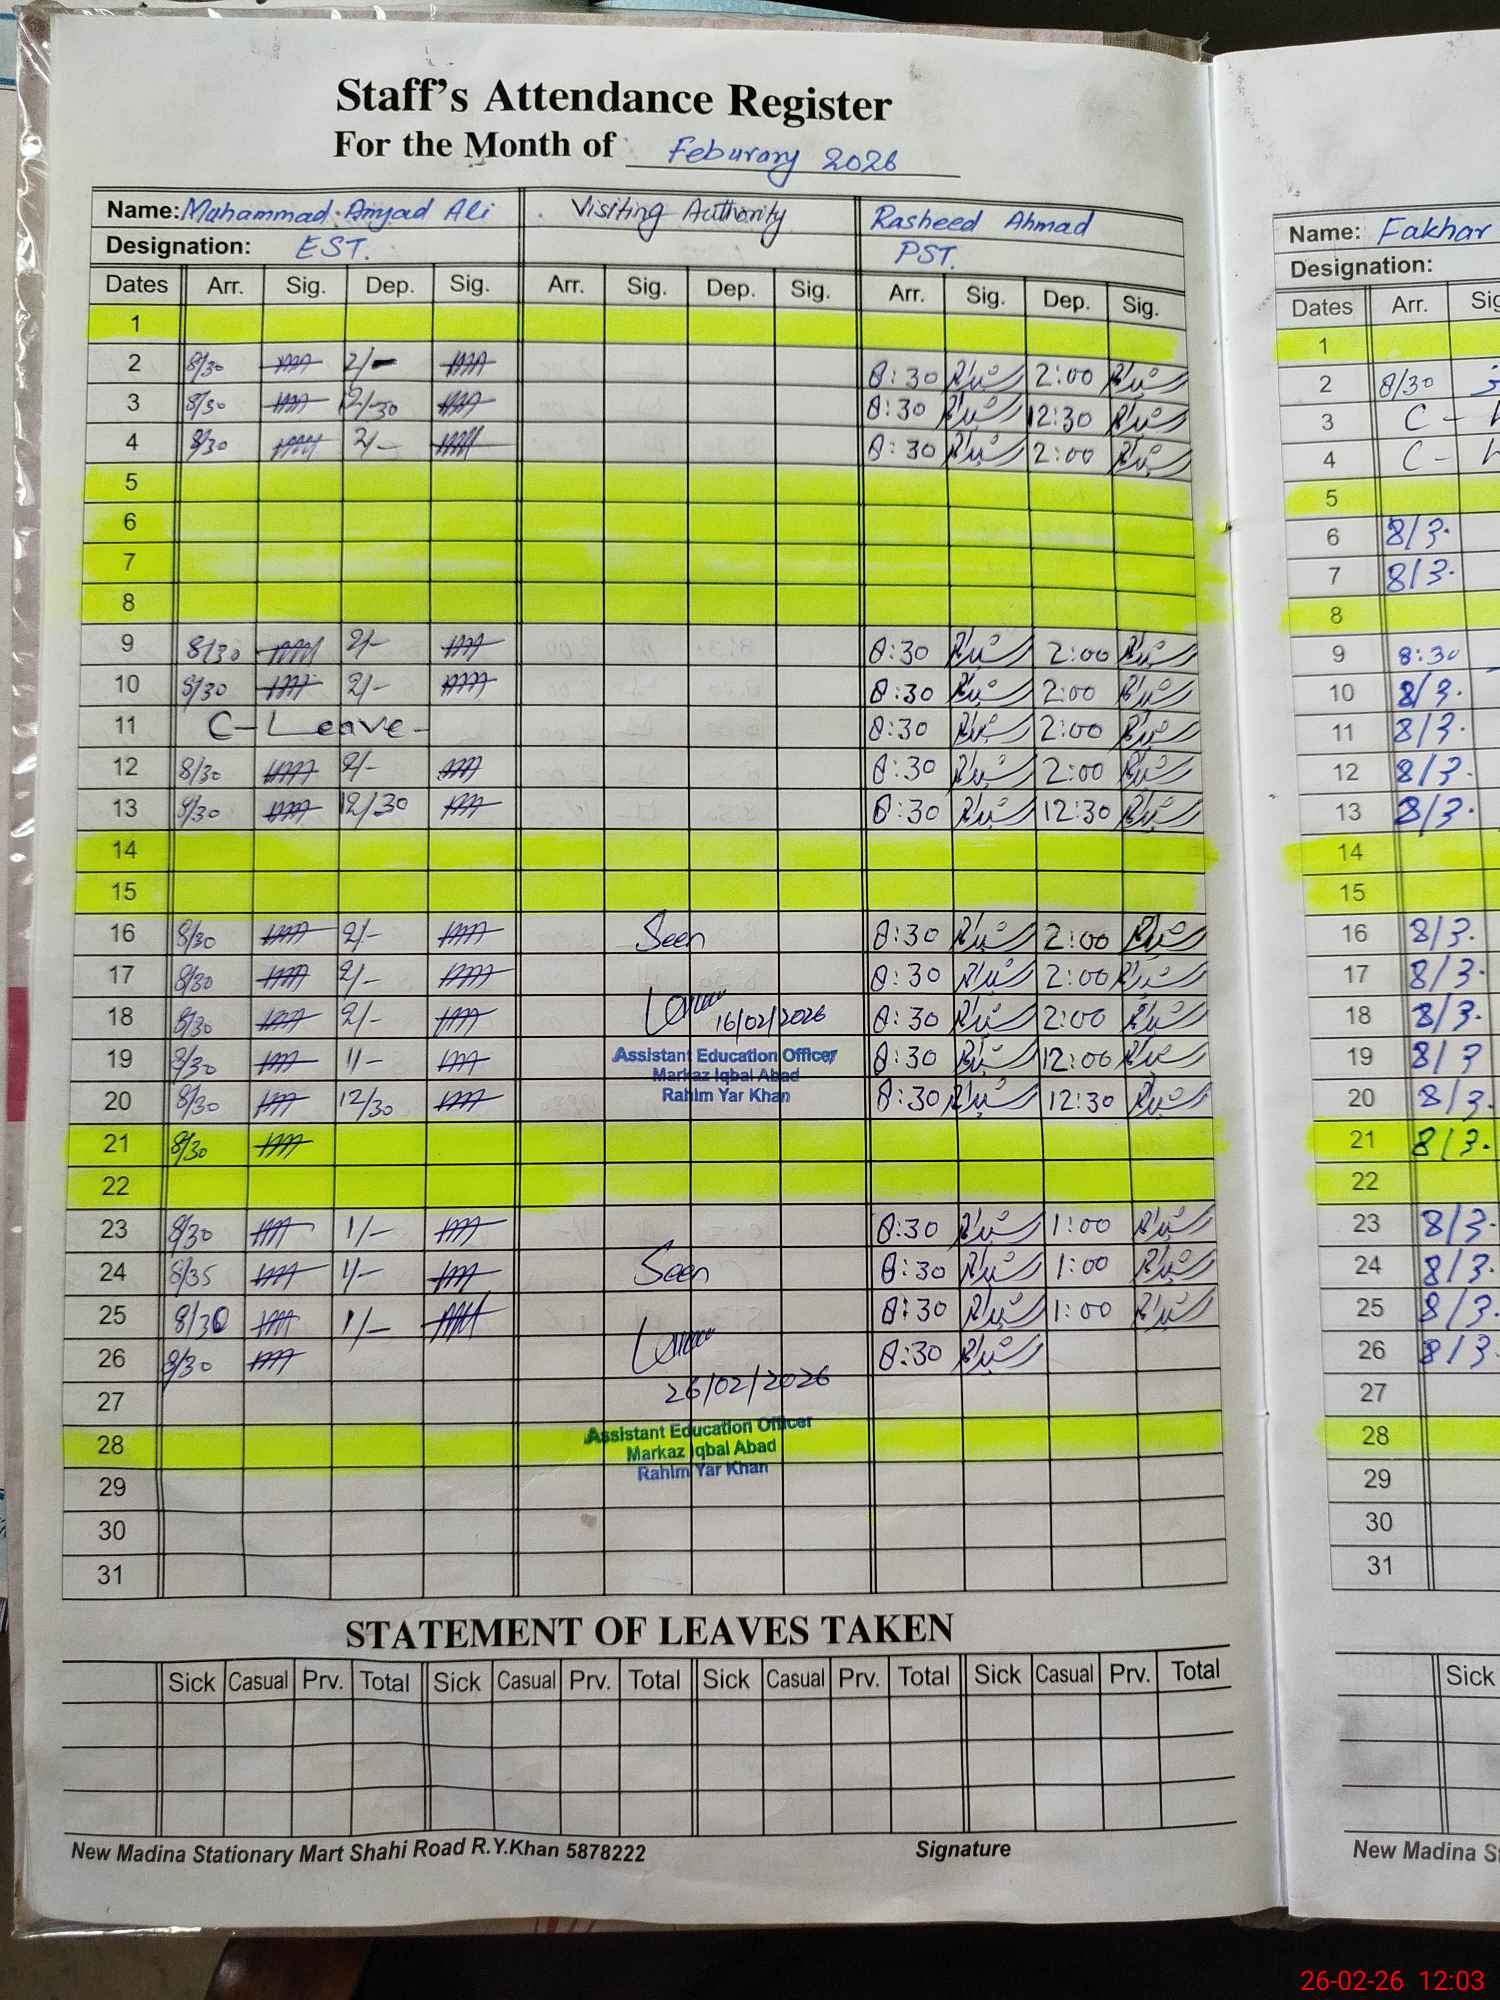 Staff's Attendance Register
For the Month of Feburary 2026
Name: Muhammad Amjad Ali Visiting Authority Rasheed Ahmad
Designation: EST. PST.
Dates Arr. Sig. Dep. Sig. Arr. Sig. Dep. Sig. Arr. Sig. Dep. Sig.
1
2 8/30 2/- 8:30 2:00
3 8/30 12/30 8:30 12:30
4 8/30 2/- 8:30 2:00
5
6
7
8
9 8/30 2/- 8:30 2:00
10 8/30 2/- 8:30 2:00
11 C-Leave- 8:30 2:00
12 8/30 2/- 8:30 2:00
13 8/30 12/30 8:30 12:30
14
15
16 8/30 2/- Seen 8:30 2:00
17 8/30 2/- 8:30 2:00
18 8/30 2/- 16/02/2026 8:30 2:00
19 8/30 Assistant Education Officer 8:30 12:00
Markaz Iqbal Abad
20 8/30 12/30 Rahim Yar Khan 8:30 12:30
21 8/30
22
23 8/30 1/- 8:30 1:00
24 8/35 1/- Seen 8:30 1:00
25 8/30 1/- 8:30 1:00
26 8/30 8:30
27 26/02/2026
28 Assistant Education Officer
Markaz Iqbal Abad
Rahim Yar Khan
29
30
31
STATEMENT OF LEAVES TAKEN
Sick Casual Prv. Total Sick Casual Prv. Total Sick Casual Prv. Total Sick Casual Prv. Total
New Madina Stationary Mart Shahi Road R.Y.Khan 5878222 Signature
Name: Fakhar
Designation:
Dates Arr.
1
2 8/30
3 C -
4 C -
5
6 8/3.
7 8/3.
8
9 8:30
10 8/3.
11 8/3.
12 8/3.
13 8/3.
14
15
16 8/3.
17 8/3.
18 8/3.
19 8/3
20 8/3.
21 8/3.
22
23 8/3.
24 8/3.
25 8/3.
26 8/3.
27
28
29
30
31
Sick
New Madina
26-02-26 12:03